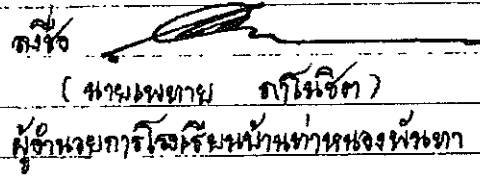 ลงชื่อ
( นายเพทาย ภาโนชิต )
ผู้อำนวยการโรงเรียนบ้านท่าหนองพันทา